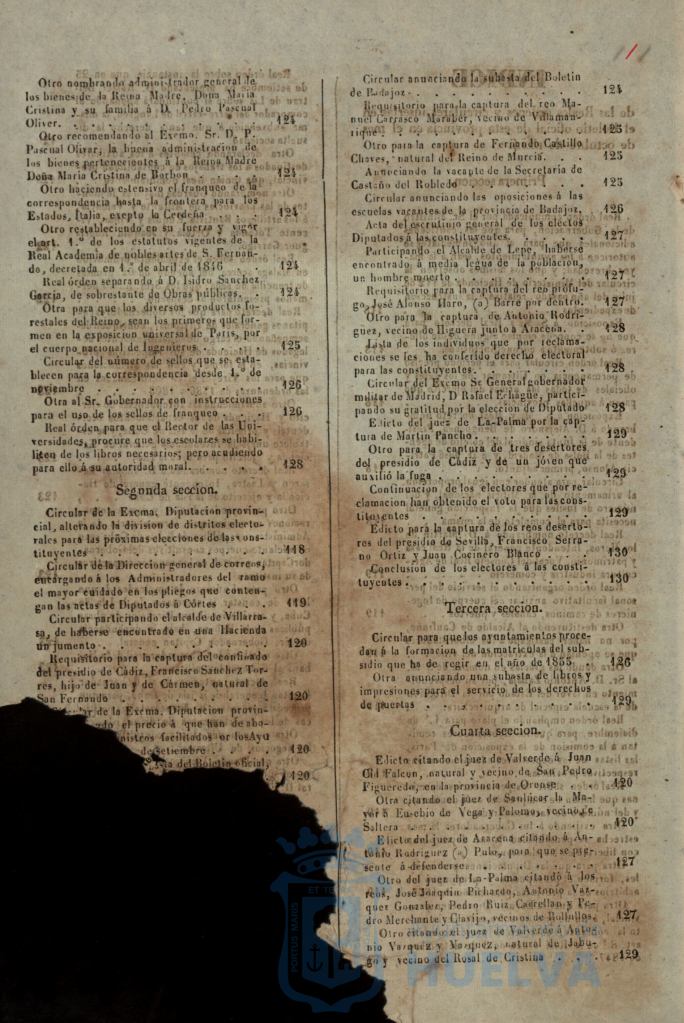 Otro nombrando administrador general de
los bienes de la Reina Madre, Doña María
Cristina y su familia á D. Pedro Pascual
Oliver. . . . . . . . . 124
Otro recomendando al Exemo. Sr. D. P.
Pascual Olivar, la buena administracion de
los bienes pertenecientes á la Reina Madre
Doña Maria Cristina de Borbon . . . . 124
Otro haciendo estensivo el franqueo de la
correspondencia hasta la frontera para los
Estados, Italia, exepto la Cerdeña . . . 124
Otro restableciendo en su fuerza y vigor
el art. 1.º de los estatutos vigentes de la
Real Academia de nobles artes de S. Fernan-
do, decretada en 1.º de abril de 1846 . . 124
Real órden separando á D. Isidro Sanchez
Garcia, de sobrestante de Obras públicas. . 124
Otra para que los diversos productos fo-
restales del Reino, sean los primeros que for-
men en la exposicion universal de Paris, por
el cuerpo nacional de Ingenieros. . . . . 125
Circular del número de sellos que se esta-
blecen para la correspondencia desde 1.º de
noviembre . . . . . . . . . 126
Otra al Sr. Gobernador con instrucciones
para el uso de los sellos de franqueo . . . 126
Real órden para que el Rector de las Uni-
versidades, procure que los escolares se habi-
liten de los libros necesarios; pero acudiendo
para ello á su autoridad moral. . . . . 128
Segunda seccion.
Circular de la Exema. Diputacion provin-
cial, alterando la division de distritos electo-
rales para las próximas elecciones de las cons-
tituyentes . . . . . . . . . 118
Circular de la Direccion general de correos,
encargando á los Administradores del ramo
el mayor cuidado en los pliegos que conten-
gan las actas de Diputados á Córtes . . . 119
Circular participando el alcalde de Villarra-
sa, de haberse encontrado en una Hacienda
un jumento . . . . . . . . . 120
Requisitorio para la captura del confinado
del presidio de Cádiz, Francisco Sanchez Tor-
res, hijo de Juan y de Cármen, natural de
San Fernando . . . . . . . . 120
de la Exema. Diputacion provin-
el precio á que han de abo-
nistros facilitados or los Ayu
de setiembre . . . 120
del Boletin oficial,
120
Circular anunciando la subasta del Boletin
de Badajoz . . . . . . . . . 124
Requisitorio para la captura del reo Ma-
nuel Carrasco Maraber, vecino de Villaman-
rique . . . . . . . . . 125
Otro para la captura de Fernando Castillo
Chaves, natural del Reino de Murcia. . . 125
Anunciando la vacante de la Secretaria de
Castaño del Robledo . . . . . . 125
Circular anunciando las oposiciones á las
escuelas vacantes de la provincia de Badajoz. 126
Acta del escrutinio general de los electos
Diputados á las constituyentes. . . . . 127
Participando el Alcalde de Lepe, haberse
encontrado á media legua de la poblacion,
un hombre muerto . . . . . . . 127
Requisitorio para la captura del reo prófu-
go, José Alonso Haro, (a) Barre por dentro. 127
Otro para la captura de Antonio Rodri-
guez, vecino de Higuera junto á Aracena. . 128
Lista de los individuos que por reclama-
ciones se les ha conferido derecho electoral
para las constituyentes. . . . . . . 128
Circular del Exemo Sr General gobernador
militar de Madrid, D Rafael Echagüe, partici-
pando su gratitud por la eleccion de Diputado 128
Edicto del juez de La-Palma por la cap-
tura de Martin Pancho. . . . . . . 129
Otro para la captura de tres desertores
del presidio de Cádiz y de un jóven que
auxilió la fuga . . . . . . . . 129
Continuacion de los electores que por re-
clamacion han obtenido el voto para las cons-
tituyentes . . . . . . . . . 129
Edicto para la captura de los reos deserto-
res del presidio de Sevilla, Francisco Serra-
no Ortiz y Juan Cocinero Blanco . . . 130
Conclusion de los electores á las consti-
tuyentes. . . . . . . . . . 130
Tercera seccion.
Circular para que los ayuntamientos proce-
dan á la formacion de las matrículas del sub-
sidio que ha de regir en el año de 1855 . . 126
Otra anunciando una subasta de libros y
impresiones para el servicio de los derechos
de puertas . . . . . . . . . 129
Cuarta seccion.
Edicto citando el juez de Valverde á Juan
Gid Falcon, natural y vecino de San Pedro
Figueredo, en la provincia de Orense . . 120
Otra citando el juez de Sanlúcar la Ma-
yor á Eusebio de Vega y Palomo, vecino de
Saltera . . . . . . . . . 120
Edicto del juez de Aracena citando á An-
tonio Rodriguez (a) Pulo, para que se pre-
sente á defenderse . . . . . . . 127
Otro del juez de La-Palma citando á los
reos, José Joaquin Pichardo, Antonio Vaz-
quez Gonzalez, Pedro Ruiz Castellan y Pe-
dro Merchante y Clavijo, vecinos de Rollullos. 127
Otro citando el juez de Valverde á Anto-
nio Vazquez y Vazquez, natural de Jabu-
go y vecino del Rosal de Cristina . . . 129
PORTUS MARIS
ET TE
HUELVA